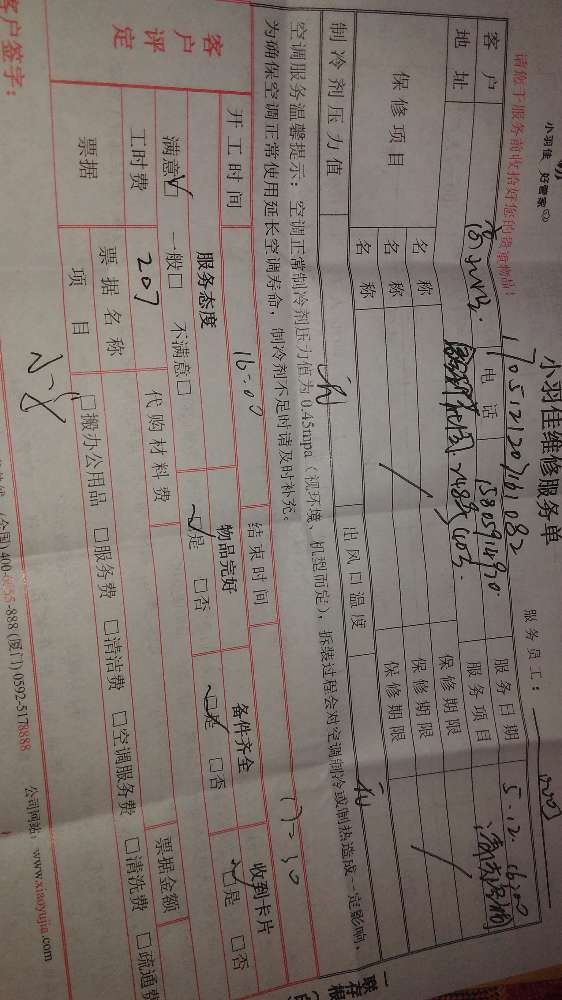 小羽佳 好管家
小羽佳维修服务单
请您于服务前收拾好您的贵重物品!
服务员工:
1705121207161082
客户 电话 服务日期 5.12. 16:00
地址 248号403. 服务项目
保修项目 名称 保修期限
名称 保修期限
名称 保修期限
制冷剂压力值 出风口温度
空调服务温馨提示:空调正常制冷剂压力值为0.45mpa(视环境、机型而定),拆装过程会对空调制冷或制热造成一定影响,
为确保空调正常使用延长空调寿命,制冷剂不足时请及时补充。
开工时间 16:00 结束时间 17:30
客户评定 服务态度 物品完好 备件齐全 收到卡片
满意☑ 一般□ 不满意□ ☑是 □否 ☑是 □否 ☑是 □否
工时费 207 代购材料费 票据金额
票据 票据名称
项目 □搬办公用品 □服务费 □清洁费 □空调服务费 □清洗费 □疏通费
客户签字:
(全国)400- -888(厦门)0592-5178888 公司网站:www.xiaoyujia.com
一联存根